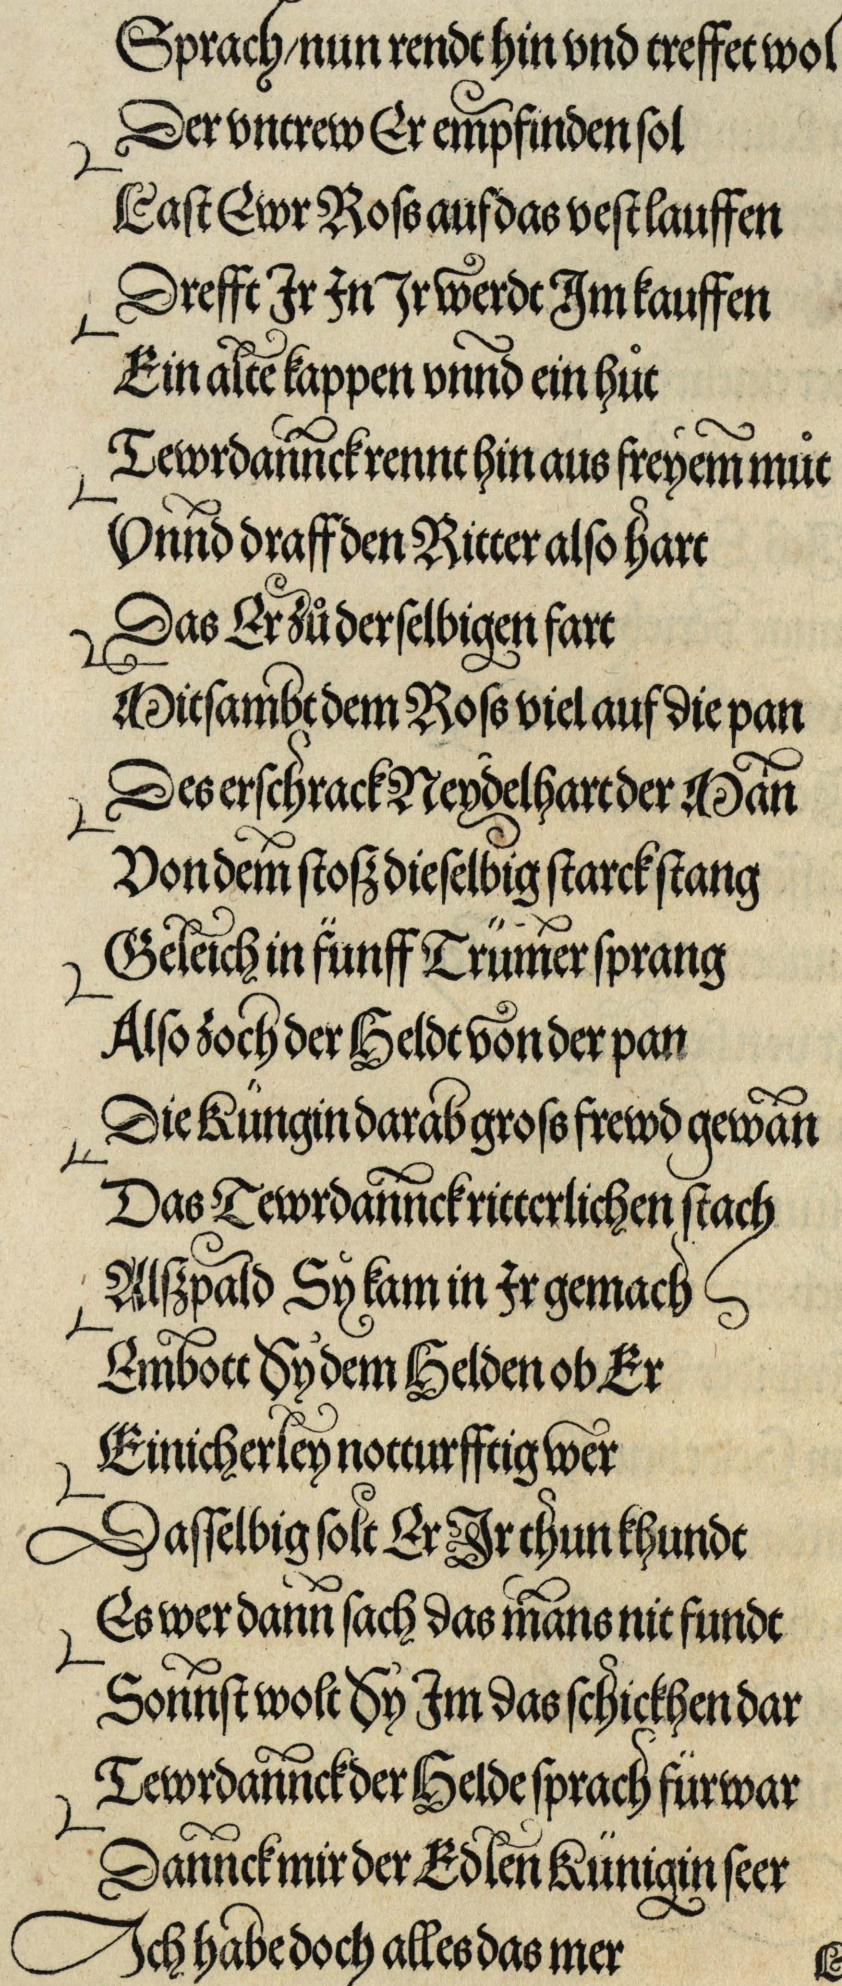 Sprach/nun rendt hin vnd treffet wol
Der vntrew Er empfinden sol
Last Ewr Ross auf das vest lauffen
Drefft Ir In Ir werdt Im kauffen
Ein alte kappen vnnd ein hůt
Tewrdannck rennt hin aus freyem můt
Vnnd draff den Ritter also hart
Das Er zů der selbigen fart
Mitsambt dem Ross viel auf die pan
Des erschrack Neydelhart der Man
Von dem stosz die selbig starck stang
Geleich in fünff Trümer sprang
Also zoch der Heldt von der pan
Die Küngin darab gross frewd gewan
Das Tewrdannck ritterlichen stach
Alszpald Sy kam in Ir gemach
Embott Sy dem Helden ob Er
Einicherley notturfftig wer
Dasselbig solt Er Ir thun khundt
Es wer dann sach das mans nit fundt
Sonnst wolt Sy Im das schickhen dar
Tewrdannck der Helde sprach fürwar
Dannck mir der Edlen Künigin seer
Ich habe doch alles das mer